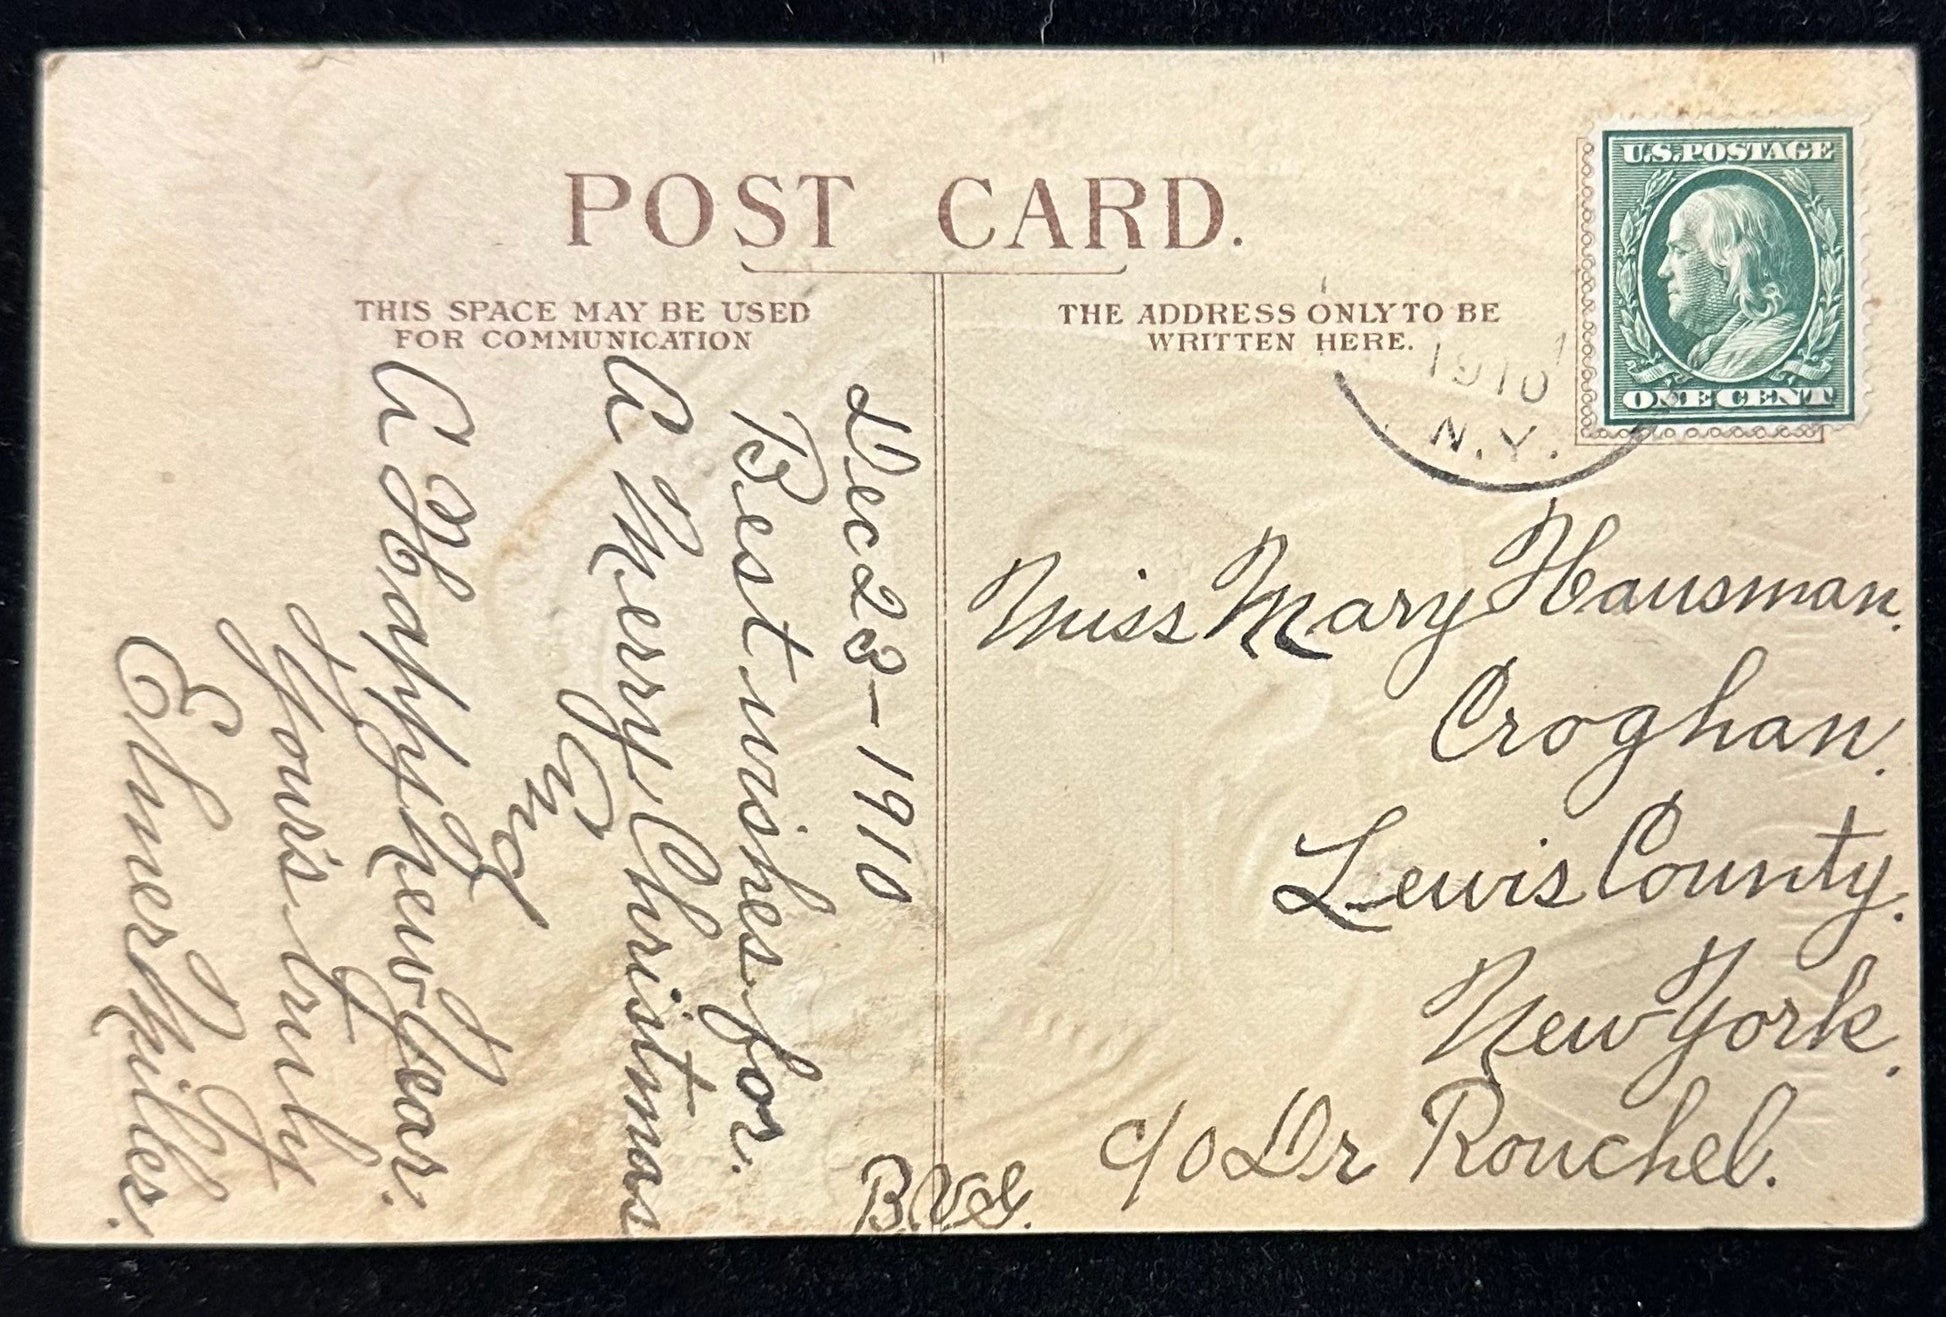 POST CARD.
THIS SPACE MAY BE USED
FOR COMMUNICATION
THE ADDRESS ONLY TO BE
WRITTEN HERE.
U.S. POSTAGE
ONE CENT
1910
N.Y.
Dec 23-1910
Best wishes for.
A Merry Christmas
And
A Happy New Year.
Your's truly
Elmer Miller.
Miss Mary Hausman.
Croghan.
Lewis County.
New York.
c/o Dr Rouchel.